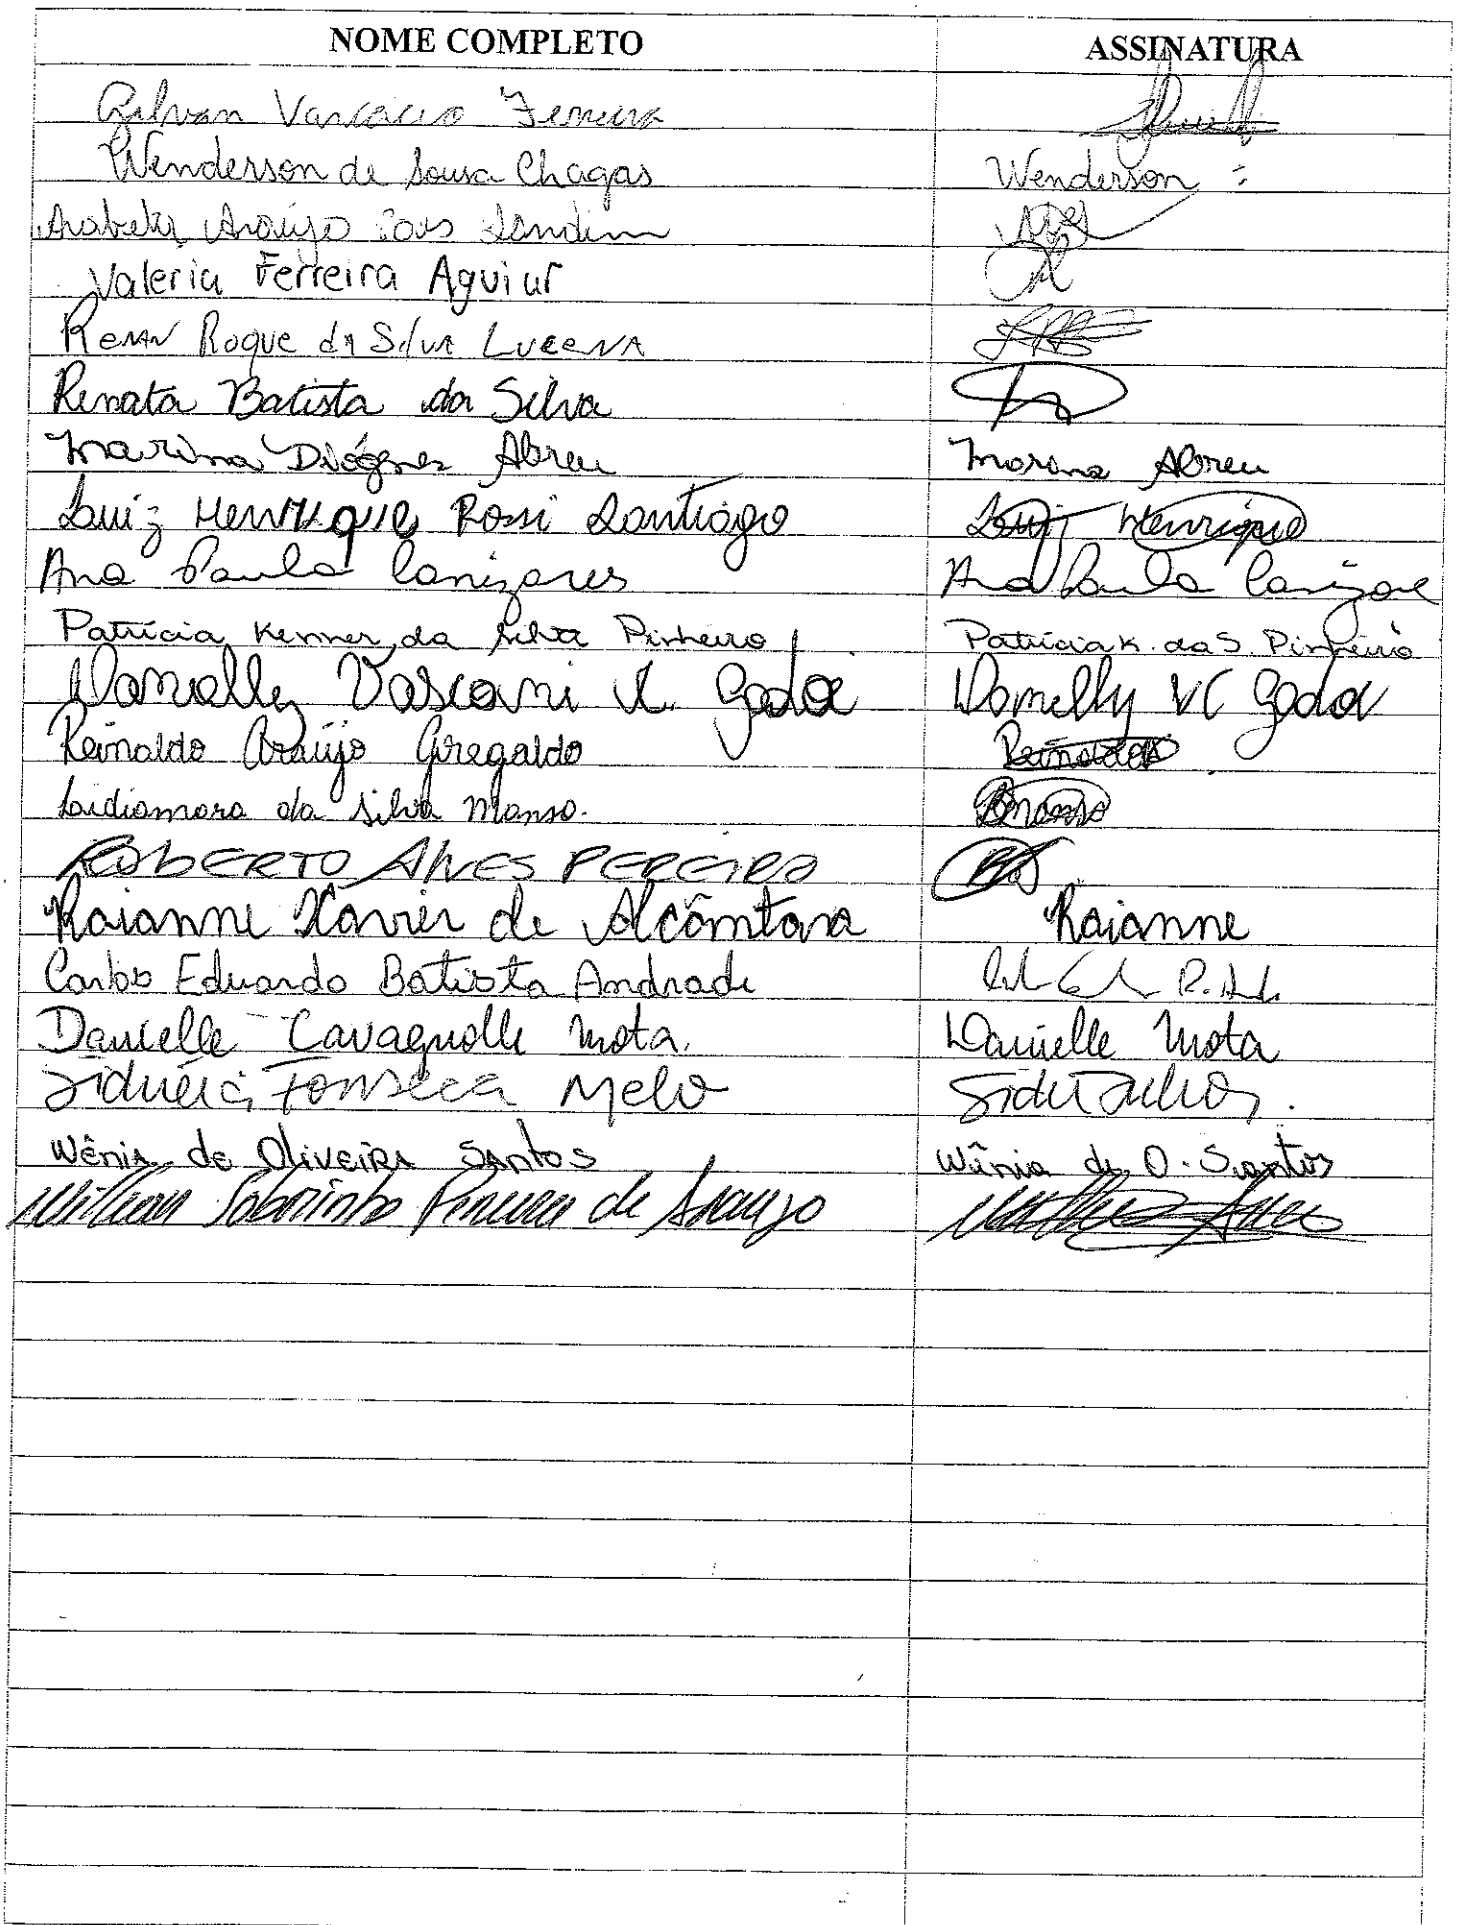 NOME COMPLETO ASSINATURA
Ferreira
Wenderson de Sousa Chagas Wenderson
Araújo Landim
Valeria Ferreira Aguiar
Renan Roque da Silva Lucena
Renata Batista da Silva
Marina Diógenes Abreu Marina Abreu
Luiz Henrique Rossi Santiago Luiz Henrique
Ana Paula Canizares Ana Paula Canizare
Patrícia Kenner da Silva Pinheiro Patrícia K. da S. Pinheiro
Vascon Godoi VC Godoi
Reinaldo Araújo Gregaldo Reinaldo
Laidiomara da Silva Manso. Manso
Roberto Alves Pereira
Raianne Xavier de Alcântara Raianne
Carlos Eduardo Batista Andrade
Danielle Cavagnolli Mota. Danielle Mota
Sidnéia Fonseca Melo
Wênia de Oliveira Santos Wênia de O. Santos
Willian Sobrinho Pereira de Araujo